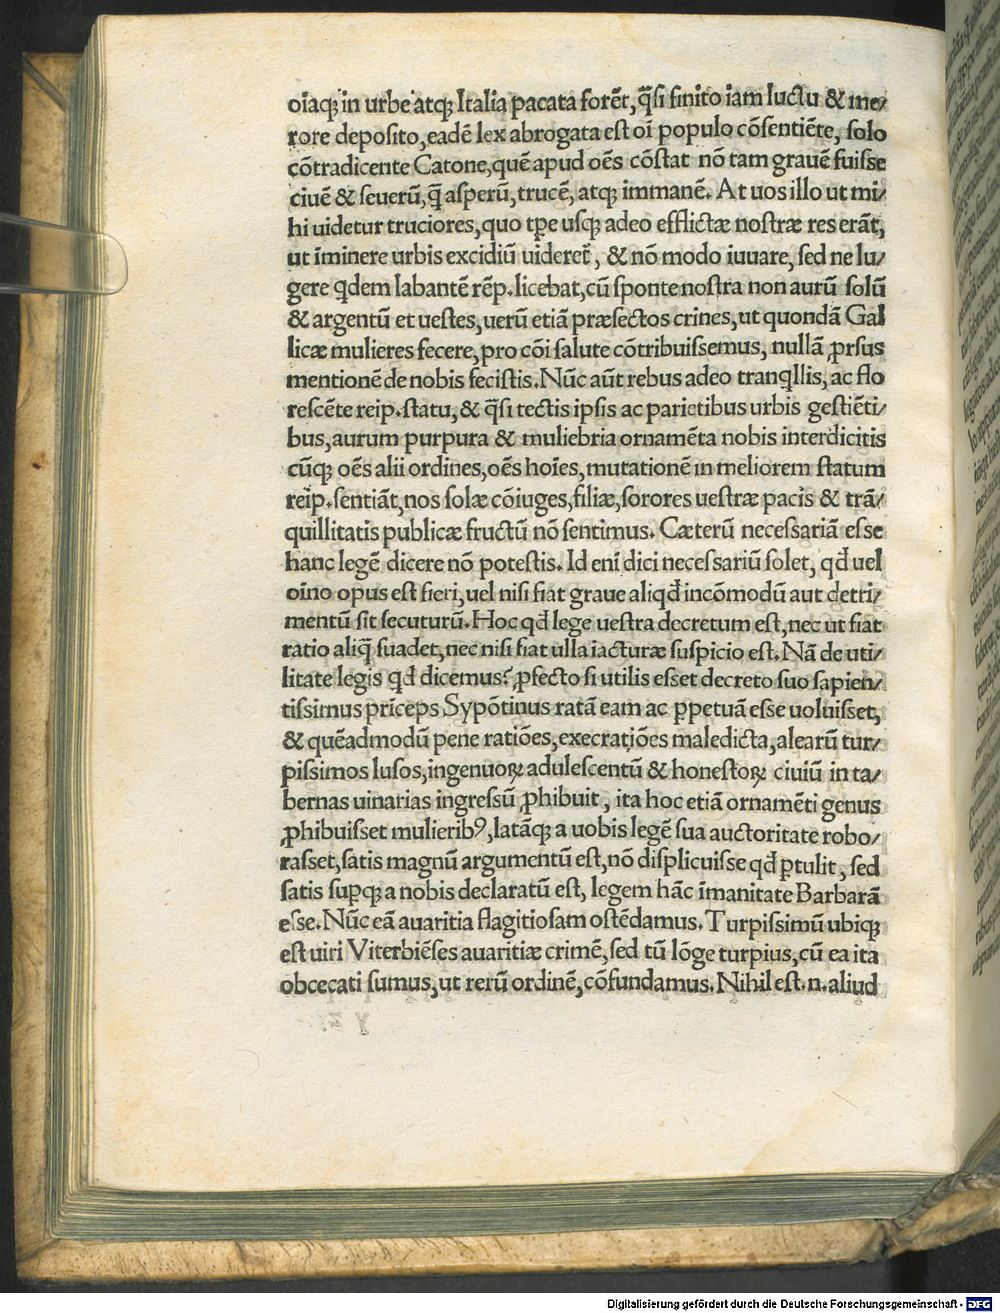 oīaq; in urbe atq; Italia pacata forēt, q̄si finito iam luctu & me/
rore deposito, eadē lex abrogata est oī populo cōsentiēte, solo
cōtradicente Catone, quē apud oēs cōstat nō tam grauē fuisse
ciuē & seuerū, q̄ asperū, trucē, atq; immanē. At uos illo ut mi/
hi uidetur truciores, quo tp̄e usq; adeo efflictæ nostræ res erāt,
ut īminere urbis excidiū uideret̄, & nō modo iuuare, sed ne lu/
gere qdem labantē rēp. licebat, cū sponte nostra non aurū solū
& argentū et uestes, uerū etiā præsectos crines, ut quondā Gal
licæ mulieres fecere, pro cōi salute cōtribuissemus, nullā ꝓrsus
mentionē de nobis fecistis. Nūc aūt rebus adeo tranqllis, ac flo
rescēte reip. statu, & q̄si tectis ipsis ac parietibus urbis gestiēti/
bus, aurum purpura & muliebria ornamēta nobis interdicitis
cūq; oēs alii ordines, oēs hoīes, mutationē in meliorem statum
reip. sentiāt, nos solæ cōiuges, filiæ, sorores uestræ pacis & trā/
quillitatis publicæ fructū nō sentimus. Cæterū necessariā esse
hanc legē dicere nō potestis. Id enī dici necessariū solet, qđ uel
oīno opus est fieri, uel nisi fiat graue aliqđ incōmodū aut detri/
mentū sit secuturū. Hoc qđ lege uestra decretum est, nec ut fiat
ratio aliq̄ suadet, nec nisi fiat ulla iacturæ suspicio est. Nā de uti/
litate legis qđ dicemus? ꝓfecto si utilis esset decreto suo sapien/
tissimus prīceps Sypōtinus ratā eam ac ꝑpetuā esse uoluisset,
& quēadmodū pene ratiōes, execratiōes maledicta, alearū tur/
pissimos lusos, ingenuoꝝ adulescentū & honestoꝝ ciuiū in ta/
bernas uinarias ingressū ꝓhibuit, ita hoc etiā ornamēti genus
ꝓhibuisset mulieribꝰ, latāq; a uobis legē sua auctoritate robo/
rasset, satis magnū argumentū est, nō displicuisse qđ ꝑtulit, sed
satis suꝑq; a nobis declaratū est, legem hāc īmanitate Barbarā
esse. Nūc eā auaritia flagitiosam ostēdamus. Turpissimū ubiq;
est uiri Viterbiēses auaritiæ crimē, sed tū lōge turpius, cū ea ita
obcecati sumus, ut rerū ordinē, cōfundamus. Nihil est .n. aliud
Digitalisierung gefördert durch die Deutsche Forschungsgemeinschaft - DFG